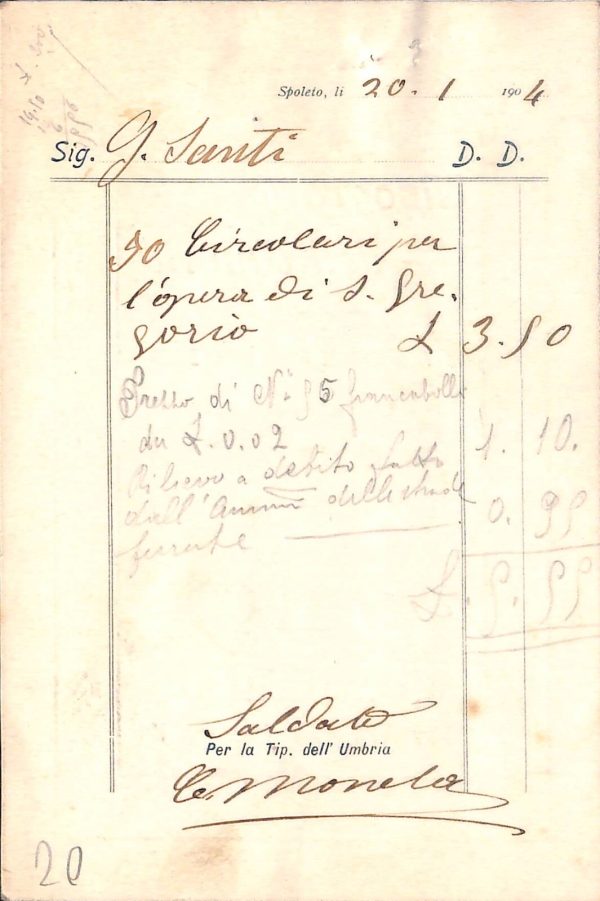 Spoleto, li 20. 1 1904
Sig. G. Santi D. D.
50 Circolari per
l'opera di S. Gre-
gorio £ 3.50
Prezzo di N° 55 francobolli
da £. 0.02 1. 10.
Rilievo a debito fatto
dall'Amm delle strade 0. 95
ferrate
£. 5. 55
Saldato
Per la Tip. dell' Umbria
20